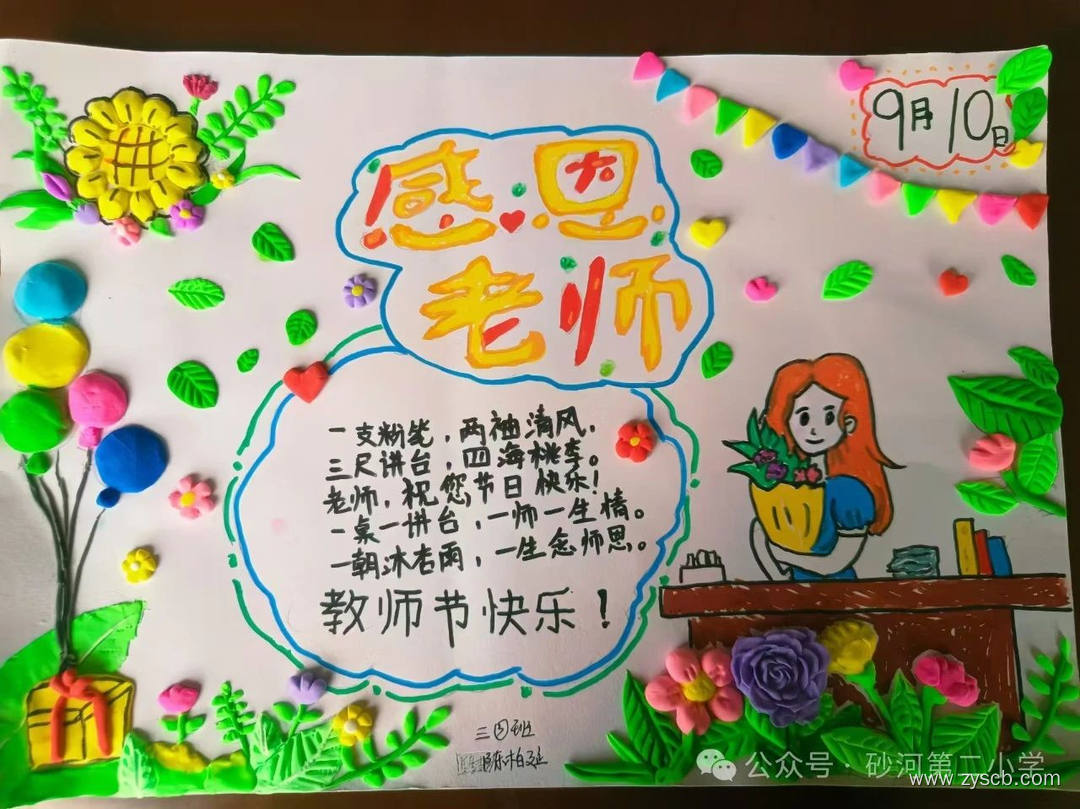 9月10日
感恩
老师
一支粉笔，两袖清风，
三尺讲台，四海桃李。
老师，祝您节日快乐！
一桌一讲台，一师一生情。
一朝沐杏雨，一生念师恩。
教师节快乐！
三四班
公众号·砂河第二小学
www.zyscb.com